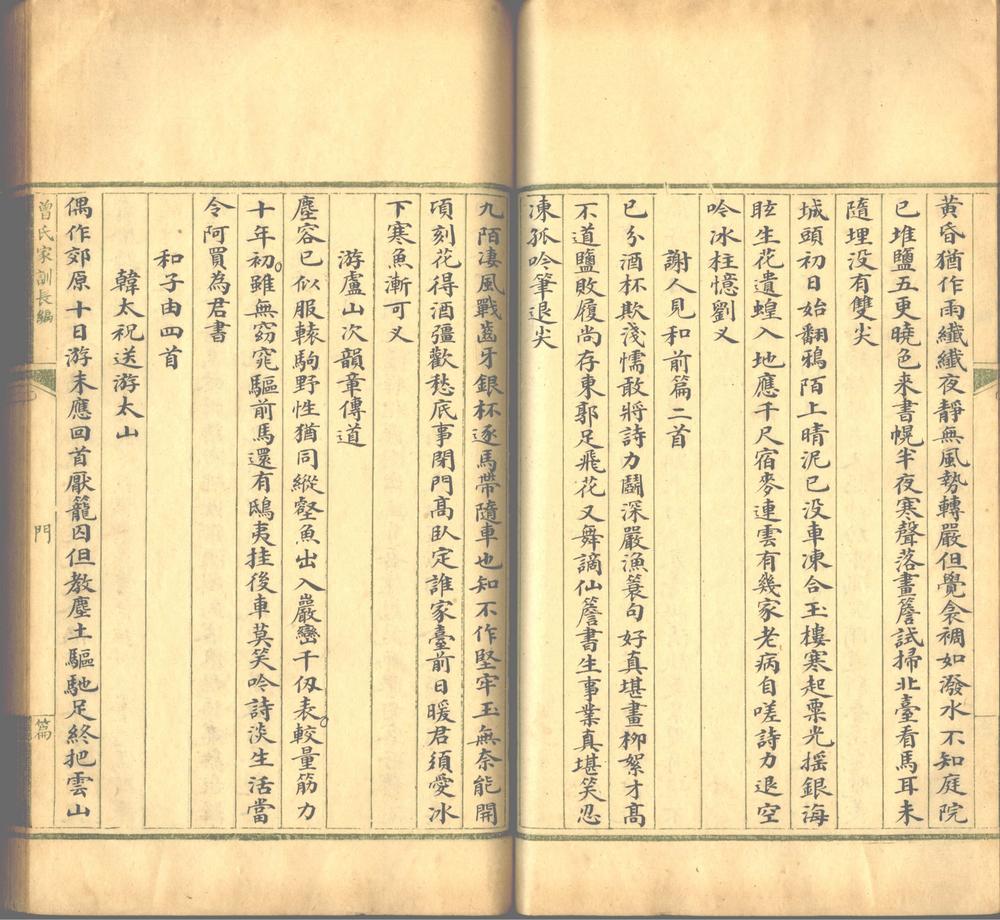 黃昏猶作雨纖纖夜靜無風勢轉嚴但覺衾裯如潑水不知庭院
已堆鹽五更曉色来書幌半夜寒聲落畫簷試掃北臺看馬耳未
隨埋没有雙尖
城頭初日始翻鴉陌上晴泥已没車凍合玉樓寒起粟光摇銀海
眩生花遺蝗入地應千尺宿麥連雲有幾家老病自嗟詩力退空
吟冰柱憶劉叉
謝人見和前篇二首
已分酒杯欺淺懦敢將詩力鬬深嚴漁蓑句好真堪畫柳絮才高
不道鹽敗履尚存東郭足飛花又舞謫仙簷書生事業真堪笑忍
凍孤吟筆退尖
九陌凄風戰齒牙銀杯逐馬帶隨車也知不作堅牢玉無奈能開
頃刻花得酒彊歡愁底事閉門高臥定誰家臺前日暖君須愛冰
下寒魚漸可叉
游廬山次韻章傳道
塵容已似服轅駒野性猶同縱壑魚出入巖巒千仭表較量筋力
十年初雖無窈窕驅前馬還有鴟夷挂後車莫笑吟詩淡生活當
令阿買為君書
和子由四首
韓太祝送游太山
偶作郊原十日游未應回首厭籠囚但教塵土驅馳足終把雲山
曾氏家訓長編
門
篇